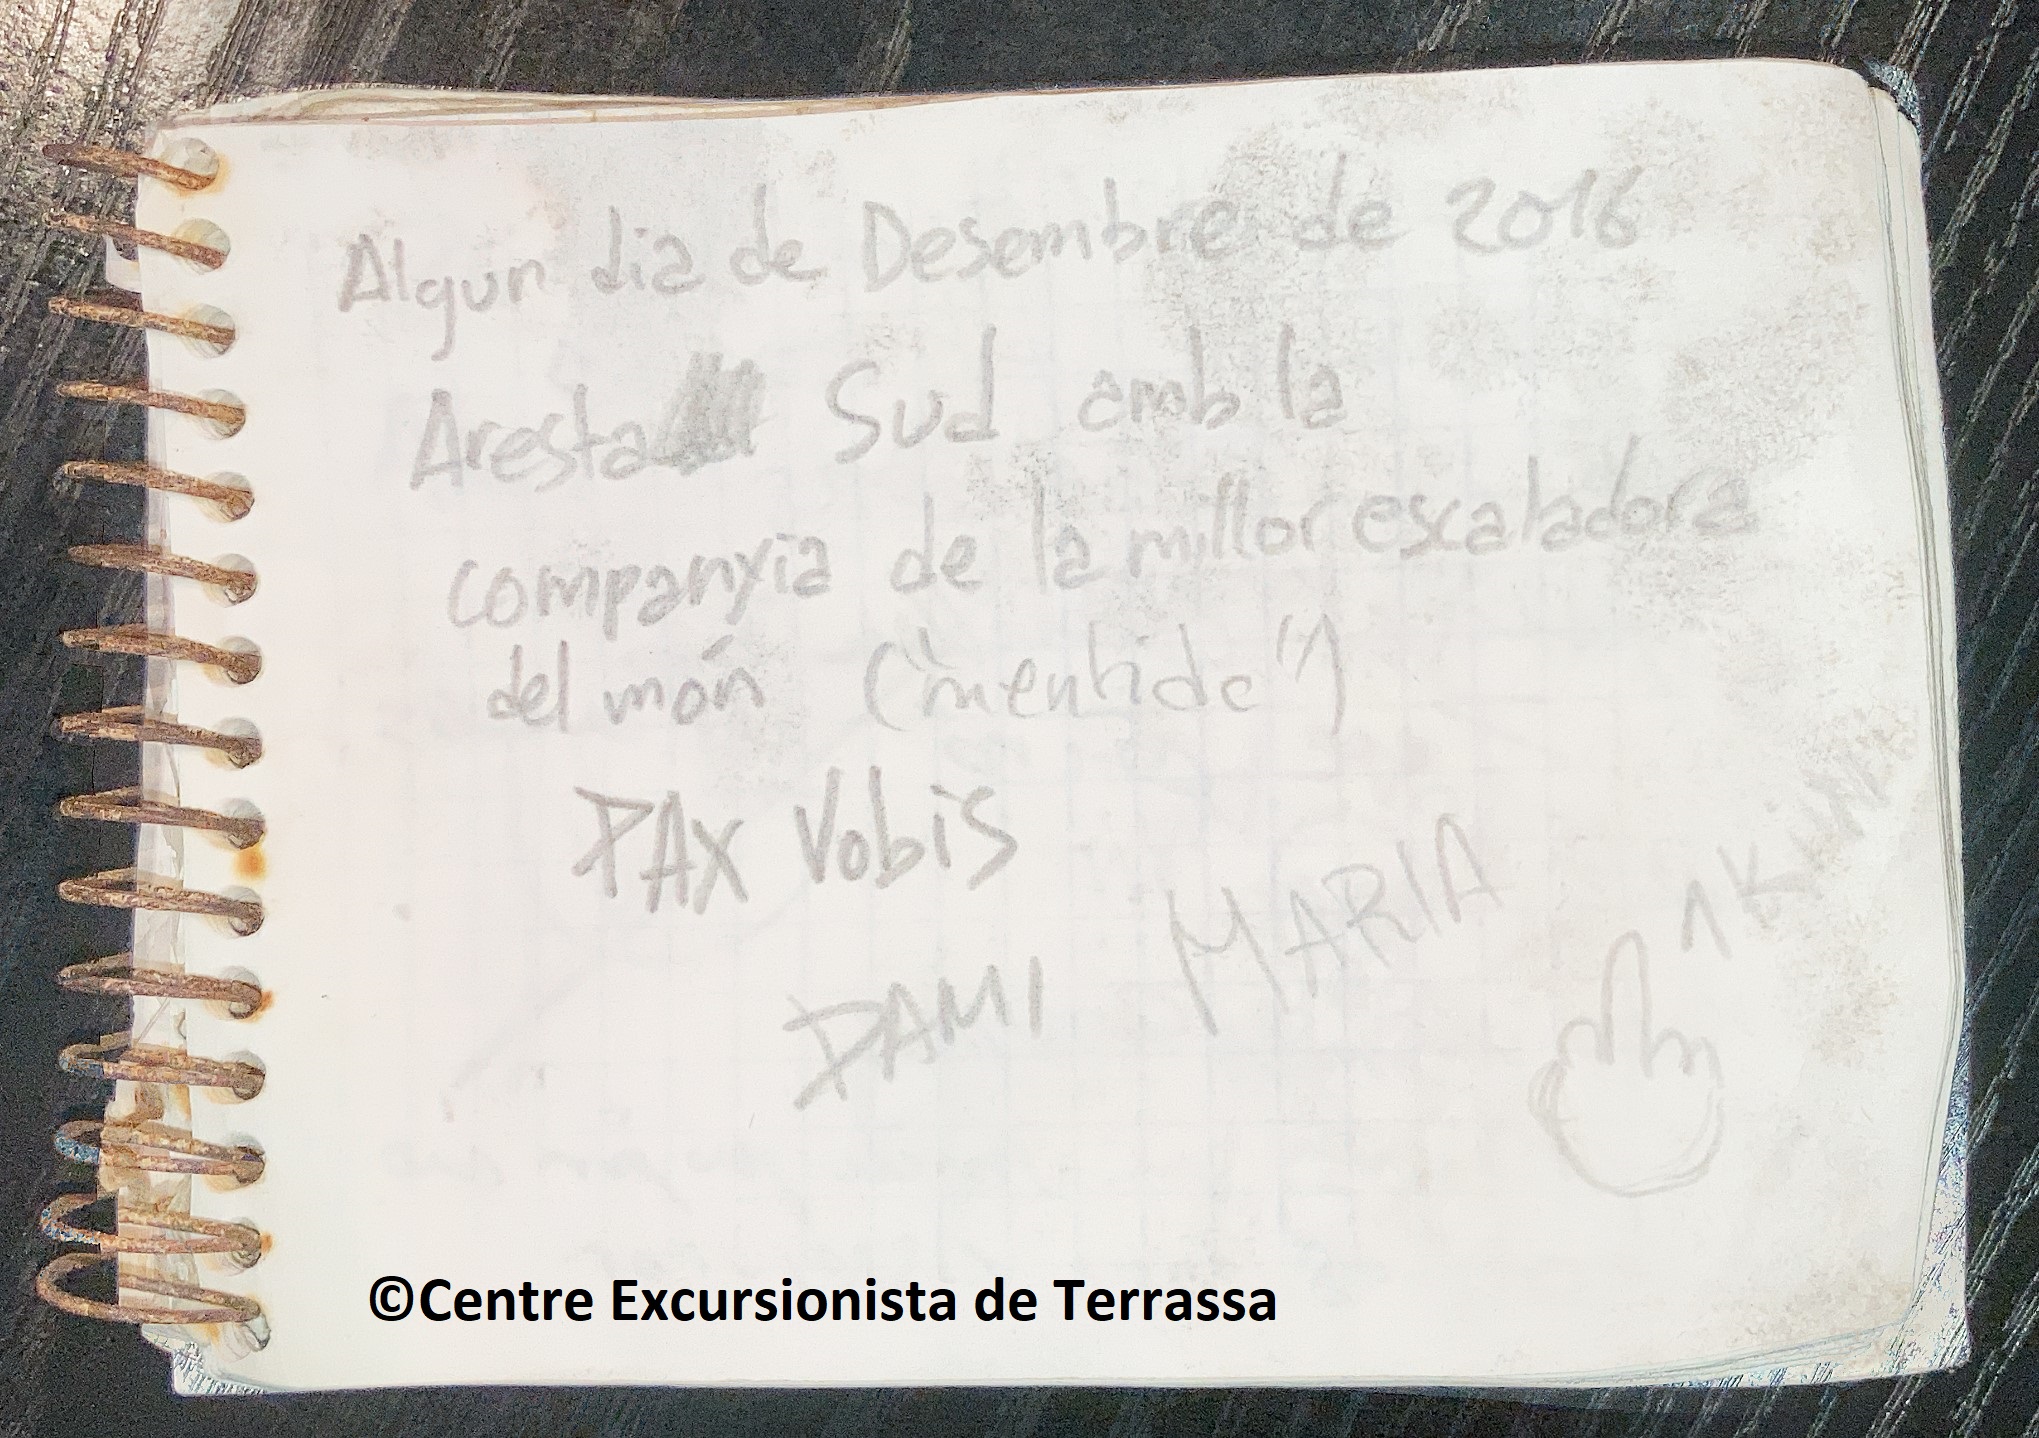 Algun dia de Desembre de 2016
Aresta Sud amb la
companyia de la millor escaladora
del món ("mentida")
PAX Vobis
MARIA
DAMI
©Centre Excursionista de Terrassa